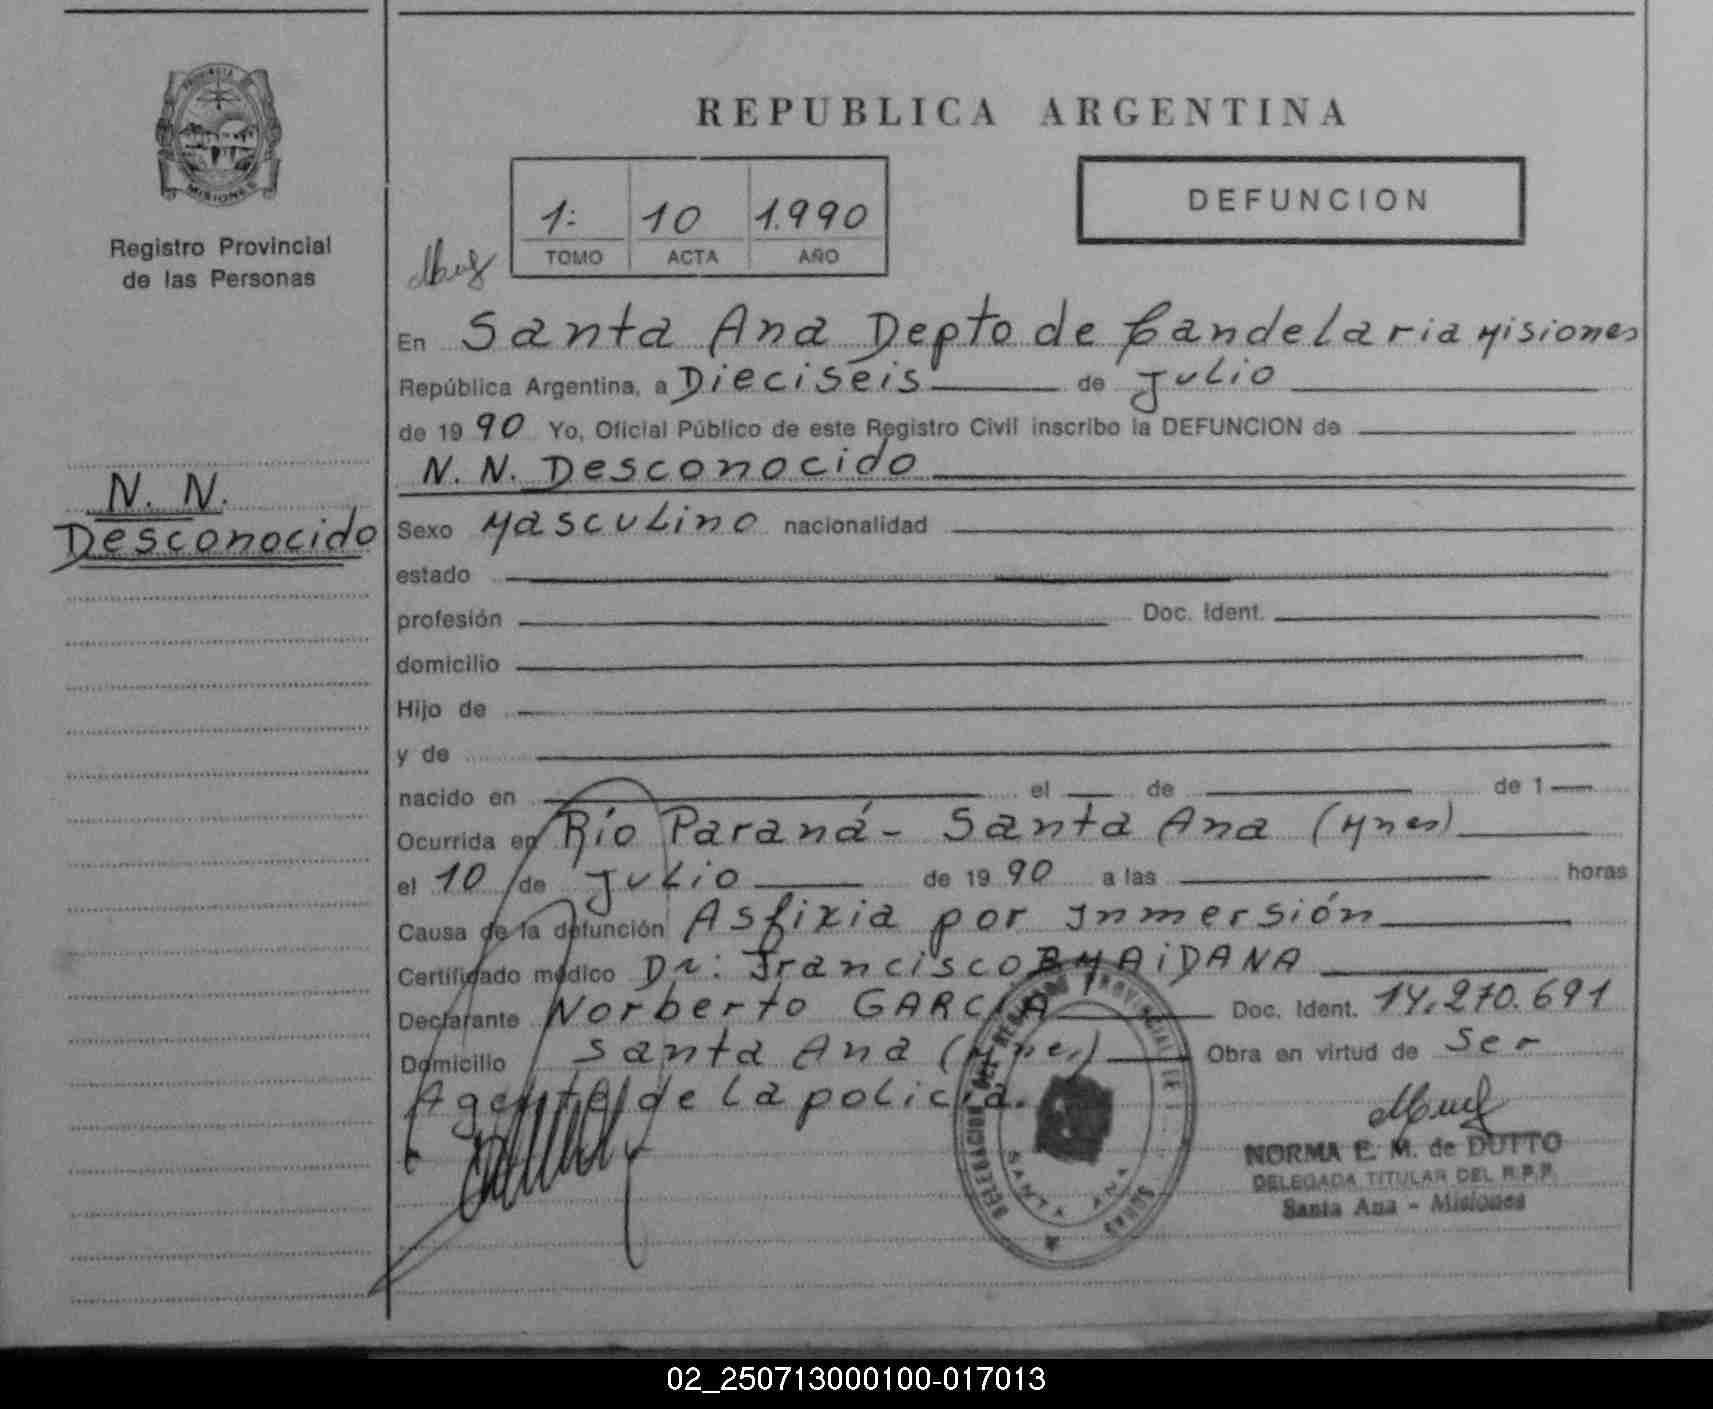 PROVINCIA
MISIONES
Registro Provincial
de las Personas
N. N.
Desconocido
REPUBLICA ARGENTINA
1: 10 1.990
TOMO ACTA AÑO
DEFUNCION
En Santa Ana Depto de Candelaria Misiones
República Argentina, a Dieciseis de Julio
de 1990 Yo, Oficial Público de este Registro Civil inscribo la DEFUNCION de
N. N. Desconocido
Sexo Masculino nacionalidad
estado
profesión Doc. Ident.
domicilio
Hijo de
y de
nacido en el de de 1
Ocurrida en Río Paraná - Santa Ana (Mnes)
el 10 de Julio de 1990 a las horas
Causa de la defunción Asfixia por Inmersión
Certificado médico Dr: Francisco B. MAiDANA
Declarante Norberto GARCIA Doc. Ident. 14.270.691
Domicilio Santa Ana (Mnes) Obra en virtud de Ser
Agente de la policia.
SANTA ANA
NORMA E. M. de DUTTO
DELEGADA TITULAR DEL R.P.P.
Santa Ana - Misiones
02_250713000100-017013